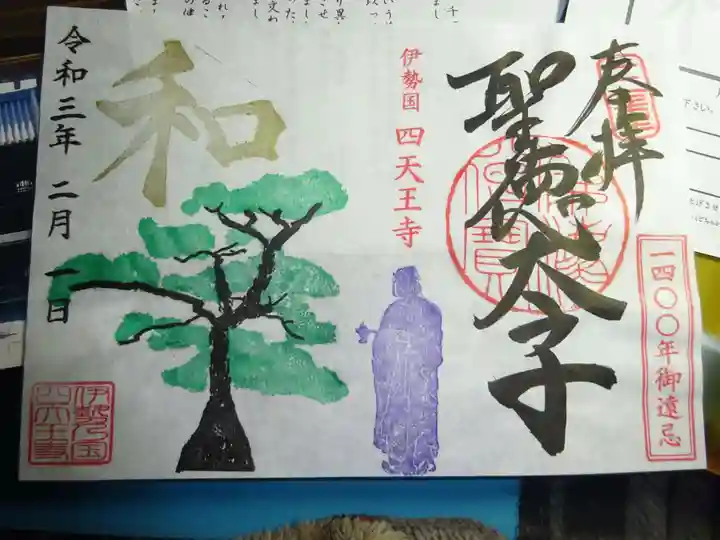 奉拝
聖徳太子
一四〇〇年御遠忌
伊勢国 四天王寺
和
令和三年 二月 一日
伊勢乃国
四天王寺
下さい。